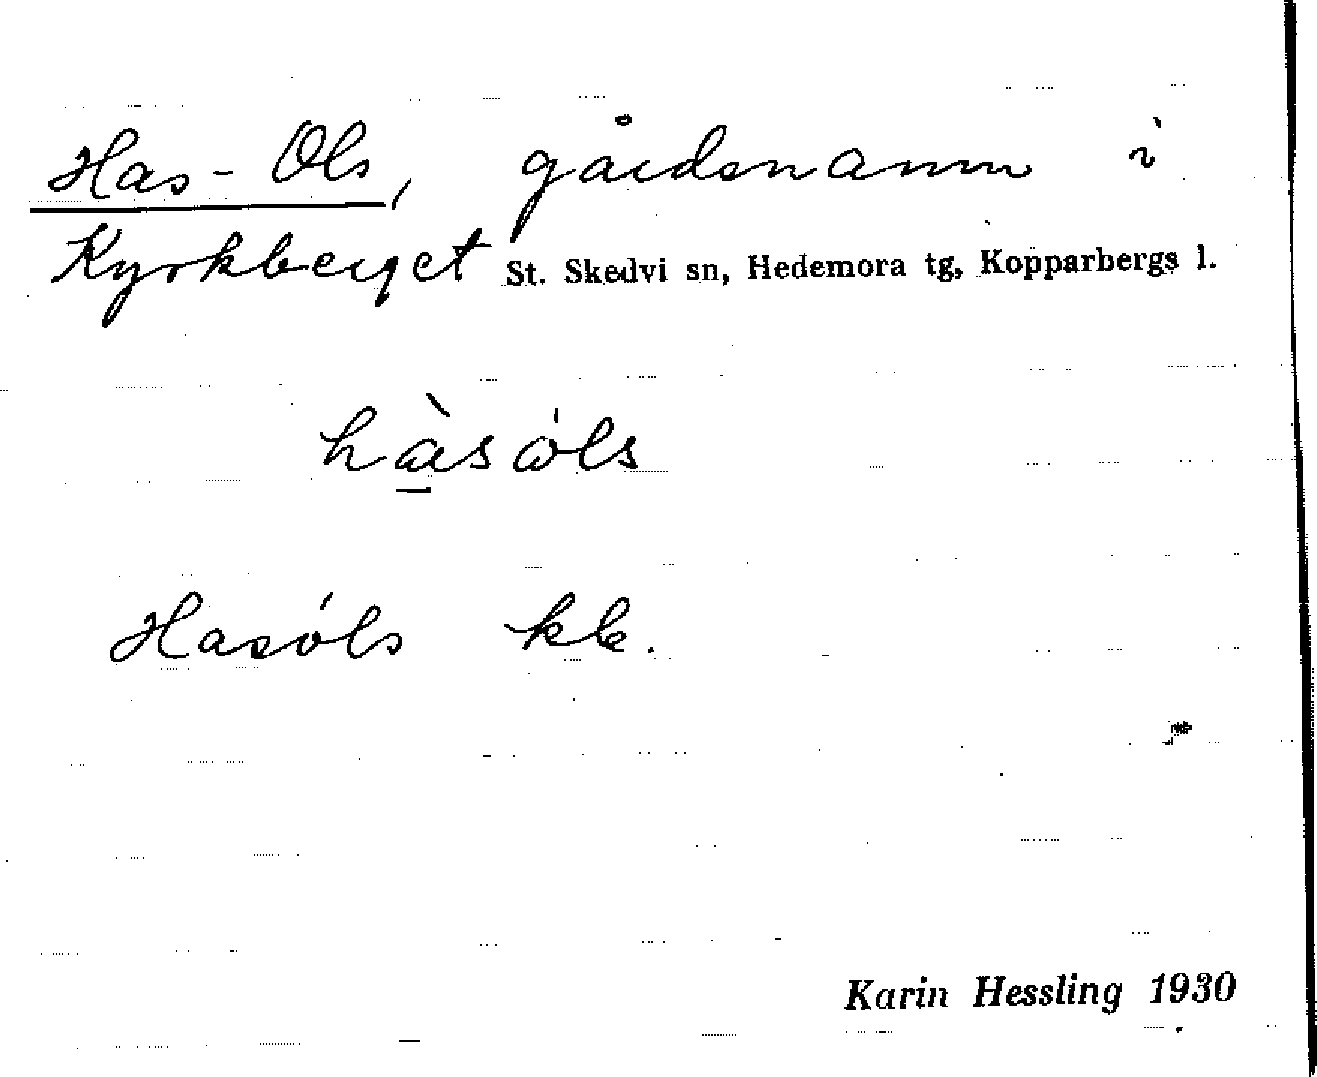 Has-Ols, gårdsnamn i
Kyrkberget St. Skedvi sn, Hedemora tg, Kopparbergs l.
hàsóls
Hasóls kb.
Karin Hessling 1930